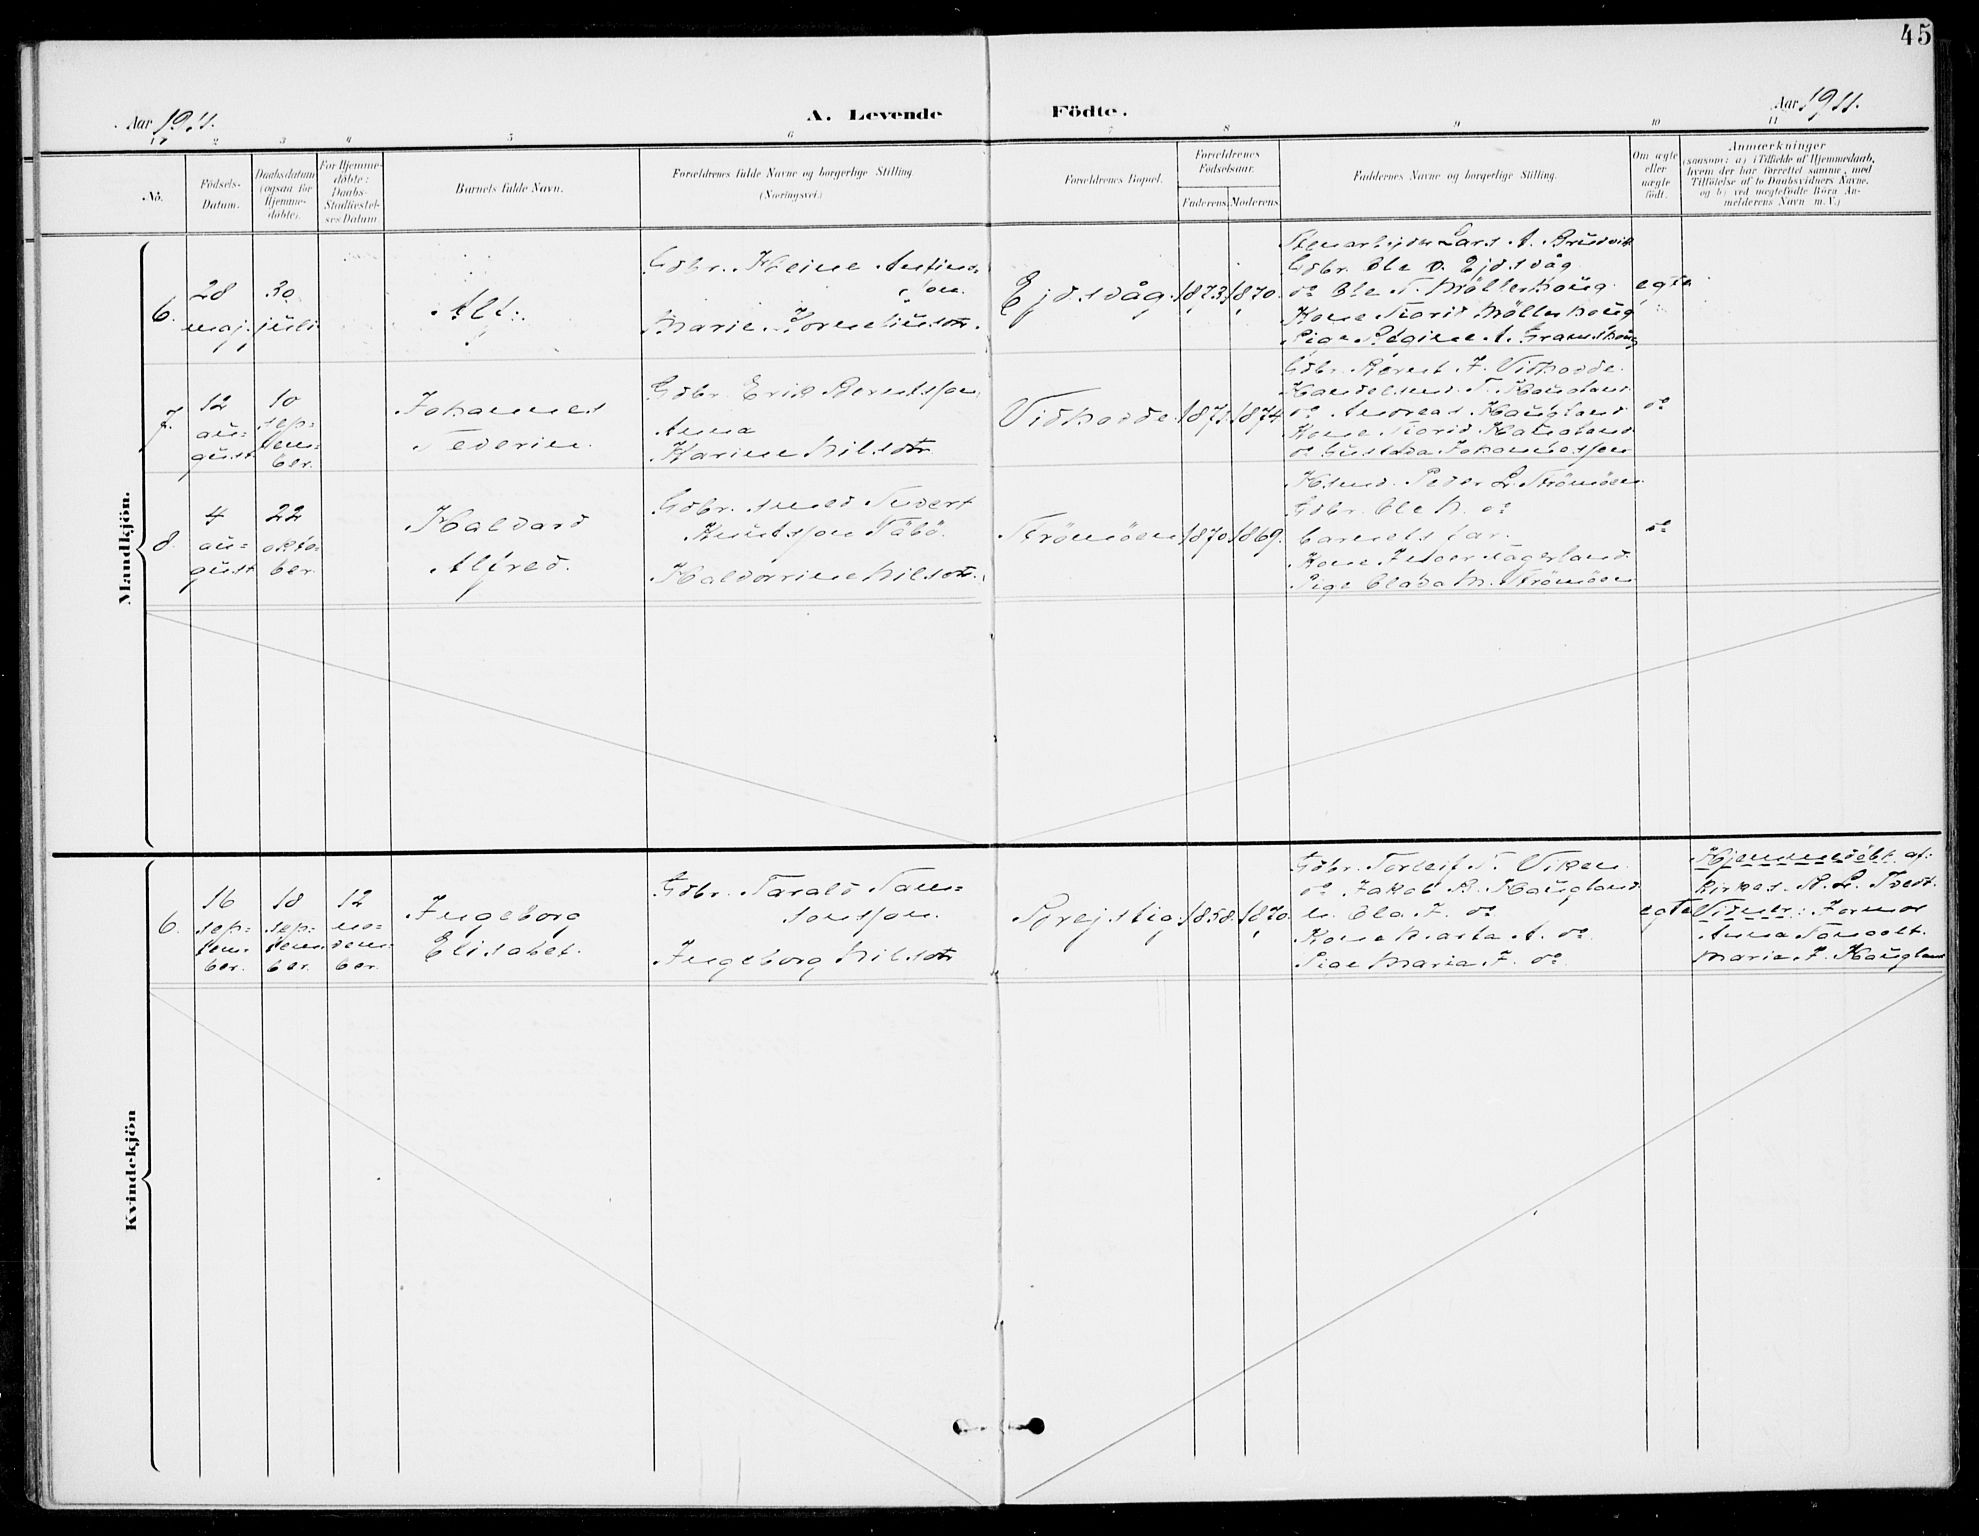 45
Aar 1911.
A. Levende
Födte.
Aar 1911.
1 2 3 4 5 6 7 8 9 10 11
No.
Födsels-
Datum.
Daabsdatum
(ogsaa for
Hjemme-
döbte).
For Hjemme-
döbte:
Daabs-
Stadfæstel-
ses Datum
Barnets fulde Navn.
Forældrenes fulde Navne og borgerlige Stilling.
(Næringsvei.)
Forældrenes Bopæl.
Forældrenes
Fødselsaar.
Faderens. Moderens.
Faddernes Navne og borgerlige Stilling.
Om ægte
eller
uægte
födt.
Anmærkninger
(saasom: a) i Tilfælde af Hjemmedaab,
hvem der har forrettet samme, med
Tilföielse af to Daabsvidners Navne,
og b) ved uægtefödte Börn An-
melderens Navn m. V.)
Mandkjön.
6.
28
maj.
30
juli
Alf.
Gdbr. Heine
son.
Marie Korneliusdtr.
Ejdsvåg.
1873.
1870.
Stenarbejder Lars A. Brudvik
Gdbr. Ole O. Ejdsvåg
do Ole T. Möllerhaug
Kone Torid Möllerhaug
Pige Regine A.
egte
7.
12
au-
gust
10
sep-
tem-
ber.
Johannes
Gdbr. Erik Berntsson
Anna
Karine Nilsdtr
Vidhodde.
1871.
1874.
Gdbr. Bernt J. Vidhodde.
Handelsmd. T. Haugland
do Andreas Haugland
Kone Torid Haugland
do Gustava Johannesson
do
8.
4
au-
gust
22
okto-
ber.
Halvard
Alfred.
Gdbr. smed Sivert
Knutsson Täbö.
Haldorine Nilsdtr.
Strömöen
1870.
1869.
Hsmd. Peder L. Strömöen.
Gdbr. Ole N. do
barnets far.
Kone
Pige Olava M. Strömöen
do
Kvindekjön
6.
16
sep-
tem-
ber.
18
sep-
tem-
ber.
12
no-
vem-
ber.
Ingeborg
Elisabet.
Gdbr. Tarald Tam-
sonsson.
Ingeborg Nilsdtr
Sprejstig.
1858.
1870.
Gdbr. Torleif T. Viken
do Jakob B. Haugland
u. Ola J. do
Kone Marta A. do
Pige Maria J. do
egte
Hjemmedöbt af:
kirkes. N. L. Tvedt.
Vidner: Jormor
Anna
Maria J. Haugland